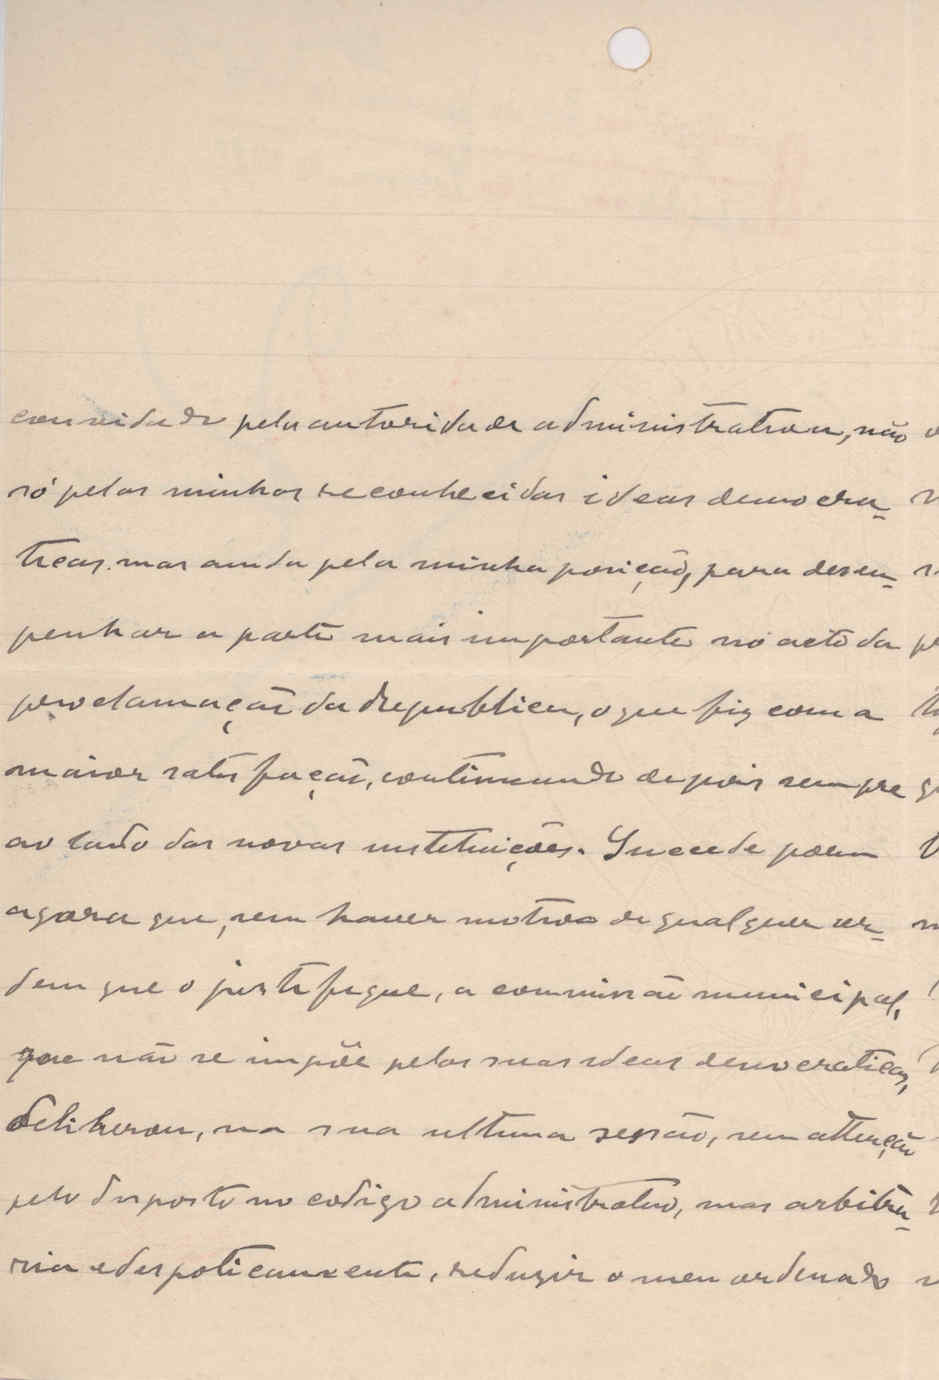 convidado pela autoridade administrativa, não
só pelas minhas reconhecidas ideas democra-
ticas, mas ainda pela minha posição, para desem-
penhar a parte mais importante no acto da
proclamação da Republica, o que fiz com a
maior satisfação, continuando depois sempre
ao lado das novas instituições. Sucede porem
agora que, sem haver motivo de qualquer or-
dem que o justifique, a commissão municipal,
que não se impõe pelas suas ideas democraticas,
deliberou, na sua ultima sessão, sem attenção
pelo disposto no codigo administrativo, mas arbitra-
ria e despoticamente, reduzir o meu ordenado